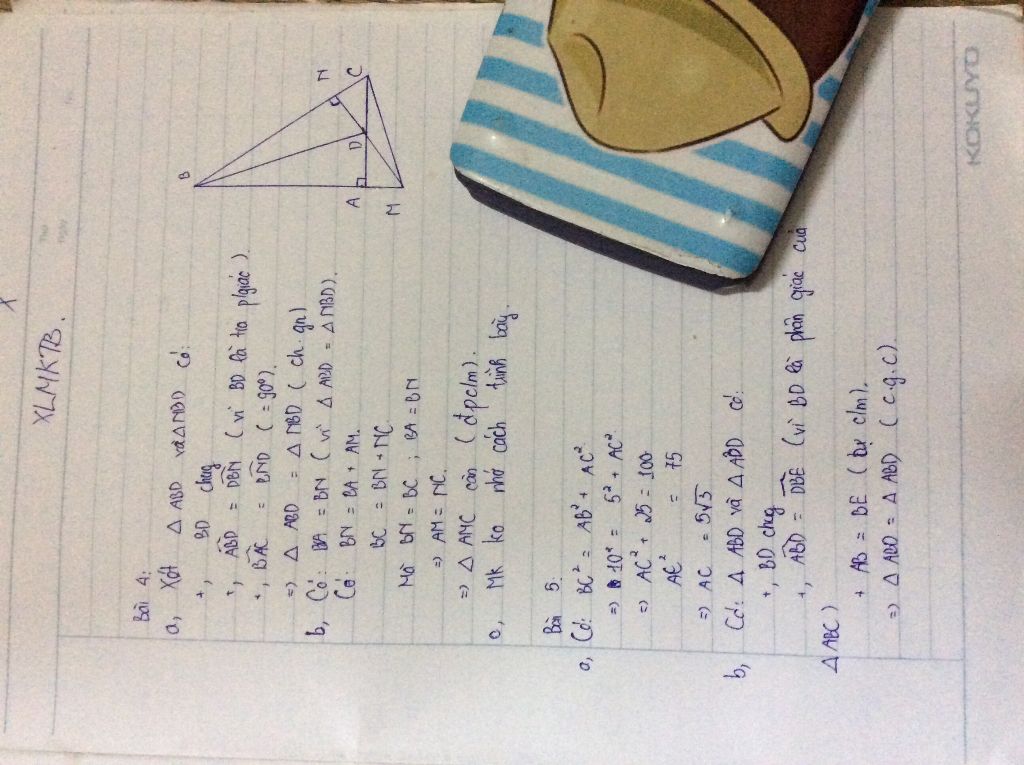 XLMKTB.
Bài 4:
a, Xét △ ABD và △ NBD có:
+, BD chug
+, ABD = DBN (vì BD là tia p/giác).
+, BAC = BND (= 90°).
=> △ ABD = △ NBD (ch.gn)
b, Có: BA = BN (vì △ ABD = △ NBD).
Có: BN = BA + AM.
BC = BN + NC
Mà BN = BC ; BA = BN
=> AM = NC.
=> △ AMC cân (đpc/m).
c, Mk ko nhớ cách trình bày.
B
A
M
D
N
C
Bài 5.
a, Có: BC² = AB² + AC².
=> 10² = 5² + AC².
=> AC² + 25 = 100
AC² = 75
=> AC = 5√3
b, Có: △ ABD và △ ABD có:
+, BD chug
+, ABD = DBE (vì BD là phân giác của
△ ABC)
+ AB = BE (tự c/m).
=> △ ABD = △ ABD (c.g.c)
KOKUYO